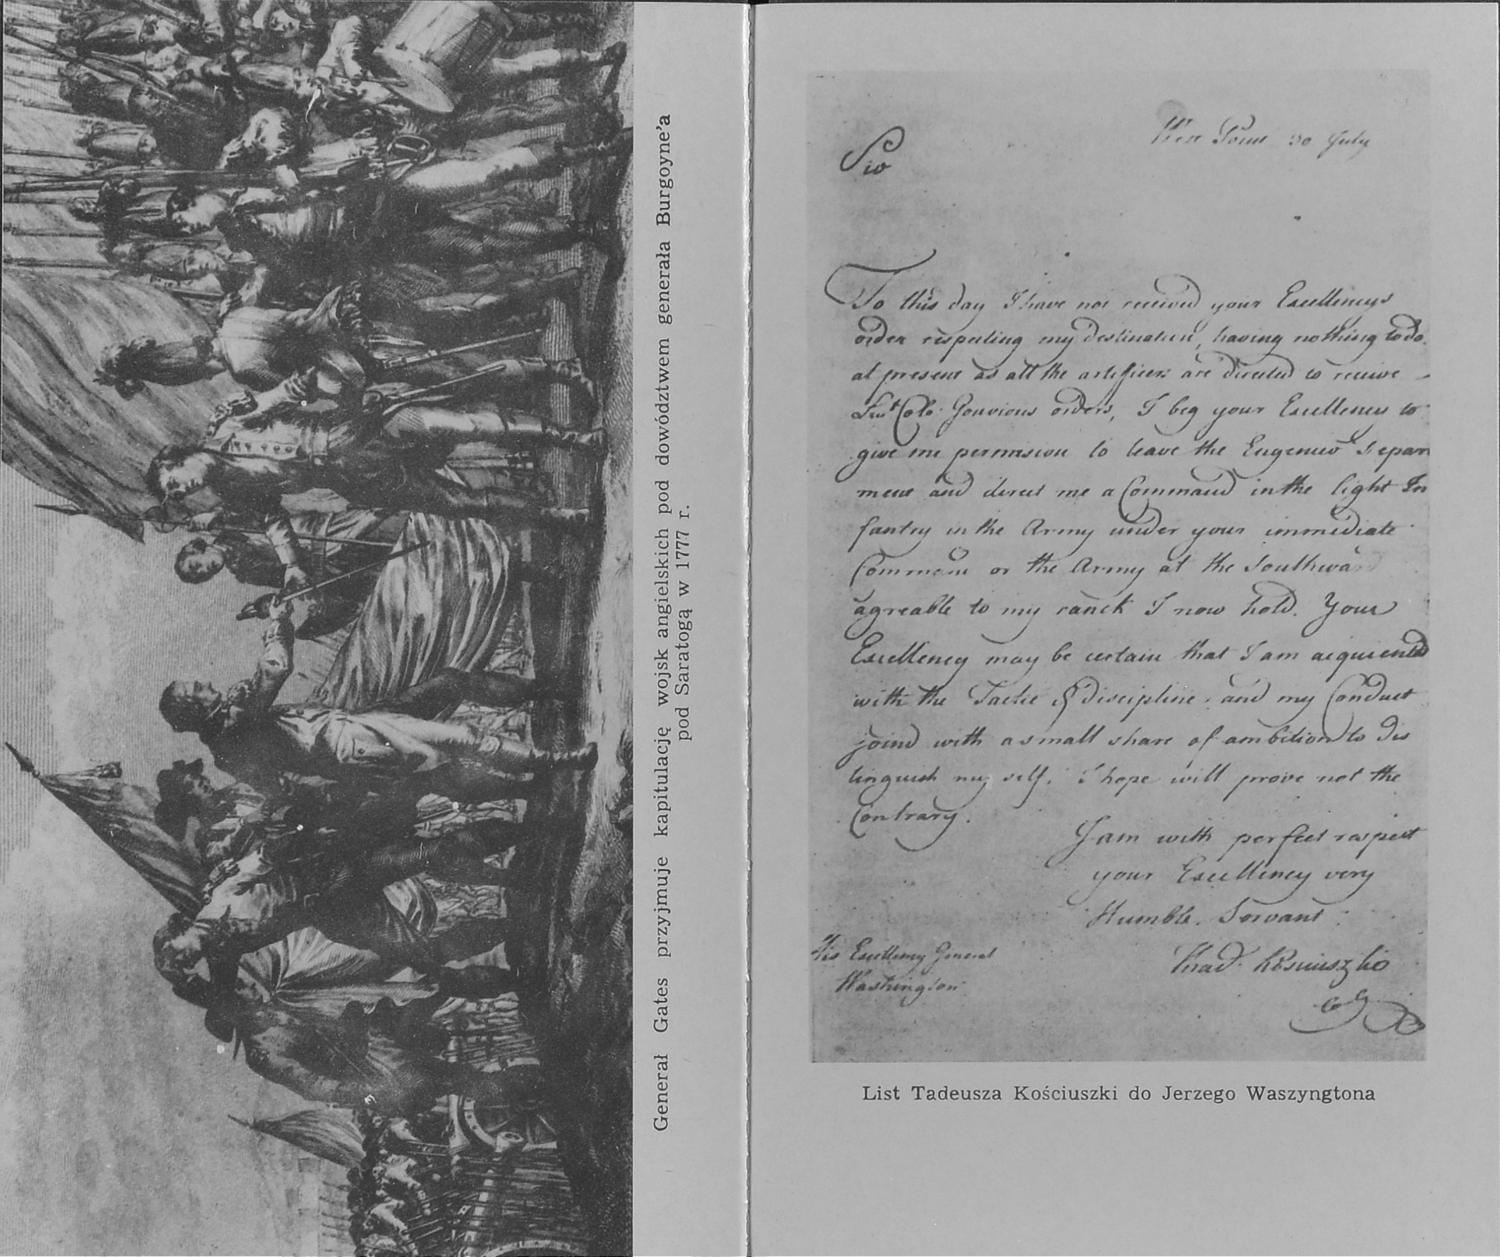 Generał Gates przyjmuje kapitulację wojsk angielskich pod dowództwem generała Burgoyne'a
pod Saratogą w 1777 r.
West Point 30 July
Sir
To this day I have not received your Excellencys
order respecting my destination, having nothing to do
at present as all the artificers are directed to receive
Colo. Gouvions orders, I beg your Excellency to
give me permission to leave the Engeneer Depart
ment and direct me a Command in the light In
fantry in the Army under your immediate
Command or the Army at the Southward
agreable to my ranck I now hold. Your
Excellency may be certain that I am acquented
with the Tactic & discipline and my Conduct
joind with a small share of ambition to dis
tinguish my self. I hope will prove not the
Contrary.
I am with perfect respect
your Excellency very
Humble Servant
Thad. Kosciuszko
His Excellency General
Washington
List Tadeusza Kościuszki do Jerzego Waszyngtona